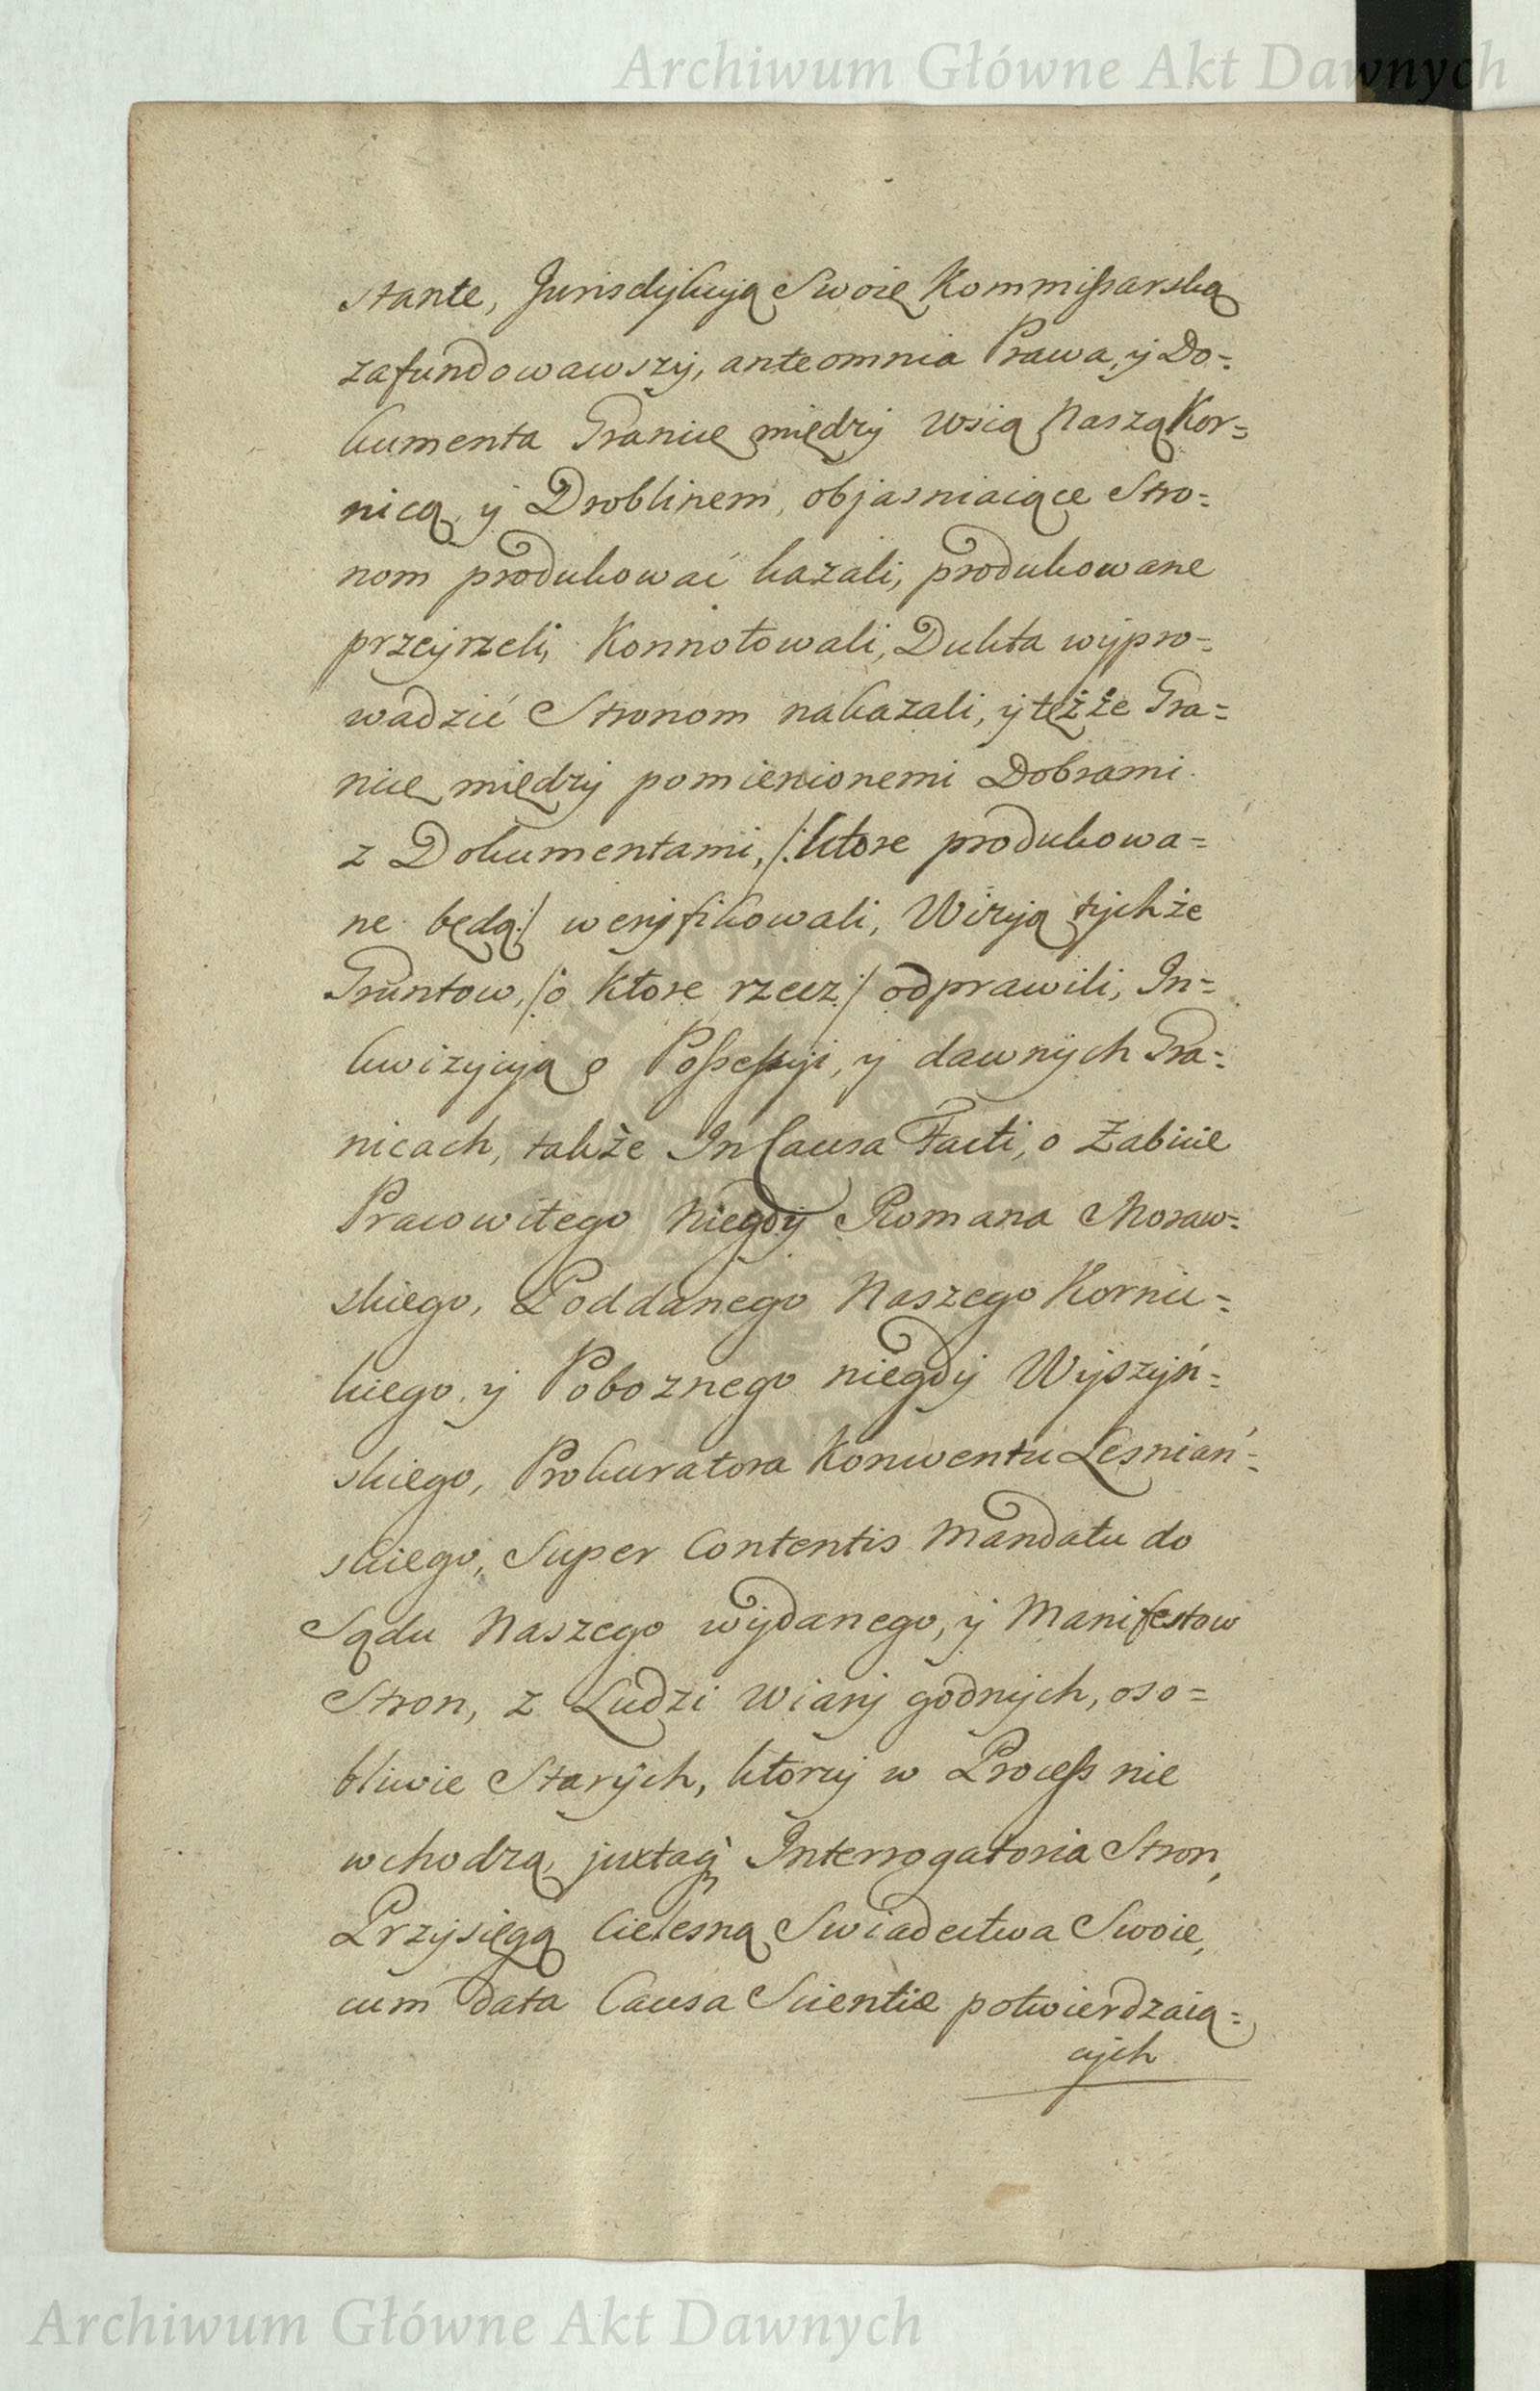 Archiwum Główne Akt Dawnych
stante, Jurisdykcyą Swoię Kommißarską
zafundowawszy, ante omnia Prawa, y Do=
kumenta Granicę między Wsią Naszą Kor=
nicą, y Droblinem, objasniaiące Stro=
nom produkować kazali, produkowane
przeyrzeli, Konnotowali, Dukta wypro=
wadzić Stronom nakazali, y tęż że Gra=
nicę między pomienionemi Dobrami
z Dokumentami, /: ktore produkowa=
ne będą :/ weryfikowali, Wizyą tychże
Gruntow, /: o ktore rzecz :/ odprawili, In=
kwizycyą o Poßeßyi, y dawnych Gra=
nicach, także In Causa Facti, o Zabicie
Pracowitego Niegdy Romana Moraw=
skiego, Poddanego Naszego Kornic=
kiego, y Pobożnego niegdy Wyszyń=
skiego, Prokuratora Konwentu Lesniań=
skiego, Super Contentis Mandatu do
Sądu Naszego wydanego, y Manifestow
Stron, z Ludzi Wiary godnych, oso=
bliwie Starych, ktorzy w Proceß nie
wchodzą, juxtaq; Interrogatoria Stron,
Przysięgą Cielesną Swiadectwa Swoie,
cum data Causa Scientiæ potwierdzaią=
cych
Archiwum Główne Akt Dawnych